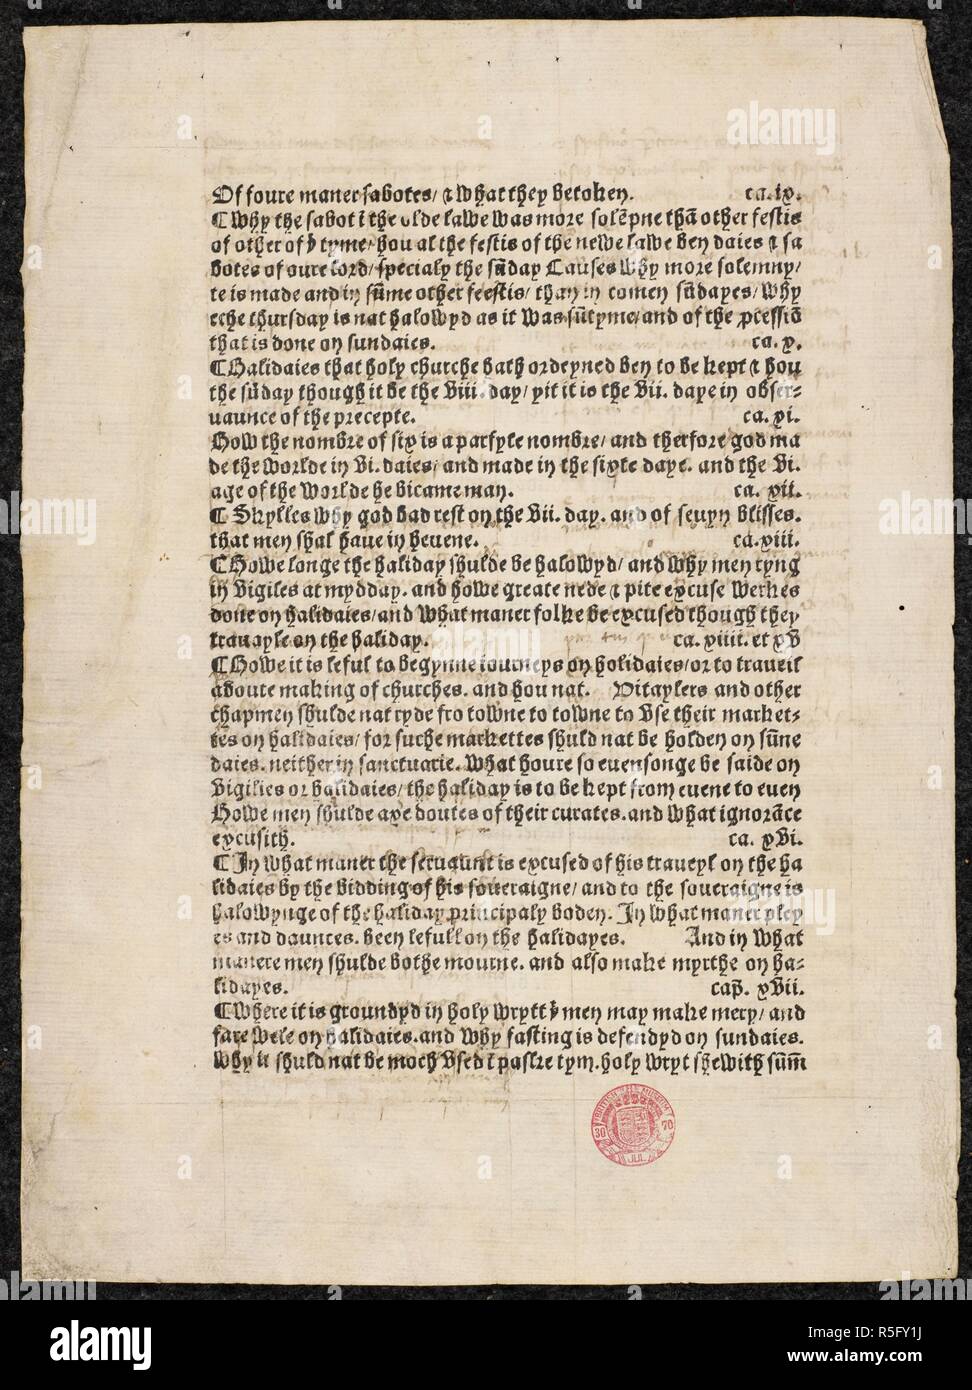 Of foure maner sabotes/ ⁊ what they betoken. ca.ix.
¶ Why the sabot ī the olde lawe was more solēpne thā other festis
of other of þͭ tyme/ hou al the festis of the newe lawe ben daies ⁊ sa
botes of oure lord/ specialy the sūday Causes why more solemny/
te is made and in sūme other feestis/ than in comen sūdayes/ why
eche thursday is nat halowyd as it was sūtyme/ and of the ꝓcessiō
that is done on sundaies. ca. x.
¶ Halidaies that holy churche hath ordeyned ben to be kept ⁊ hou
the sūday though it be the viii. day/ yit it is the vii. daye in obser-
uaunce of the precepte. ca. xi.
How the nombre of six is a parfyte nombre/ and therfore god ma
de the worlde in vi. daies/ and made in the sixte daye. and the vi.
age of the worlde he bicame man. ca. xii.
¶ Skylles why god bad rest on the vii. day. and of seuyn blisses.
that men shal haue in heuene. ca. xiii.
¶ Howe longe the haliday shulde be halowyd/ and why men ryng
in vigiles at mydday. and howe greate nede ⁊ pite excuse werkes
done on halidaies/ and what maner folke be excused though they
trauayle on the haliday. ca. xiiii. et xv
¶ Howe it is leful to begynne iourneys on holidaies/ or to traueil
aboute making of churches. and hou nat. Vitaylers and other
chapmen shulde nat ryde fro towne to towne to vse their market-
tes on halidaies/ for suche markettes shuld nat be holden on sūne
daies. neither in sanctuarie. What houre so euensonge be saide on
vigilies or halidaies/ the haliday is to be kept from euene to euen
Howe men shulde axe doutes of their curates. and what ignorāce
excusith. ca. xvi.
¶ In what maner the seruaunt is excused of his traueyl on the ha
lidaies by the bidding of his soueraigne/ and to the soueraigne is
halowynge of the haliday principaly boden. In what maner pley
es and daunces. been lefull on the halidayes. And in what
manere men shulde bothe mourne. and also make myrthe on ha-
lidayes. cap̄. xvii.
¶ Where it is groundyd in holy wrytt þͭ men may make mery/ and
fare wele on halidaies. and why fasting is defendyd on sundaies.
Why it shuld nat be moch vsed ī paske tym. holy wryt shewith sūm̄
BRITISH MUSEUM
30 JUL 70
alamy
alamy stock photo
Image ID: R5FY1J
www.alamy.com